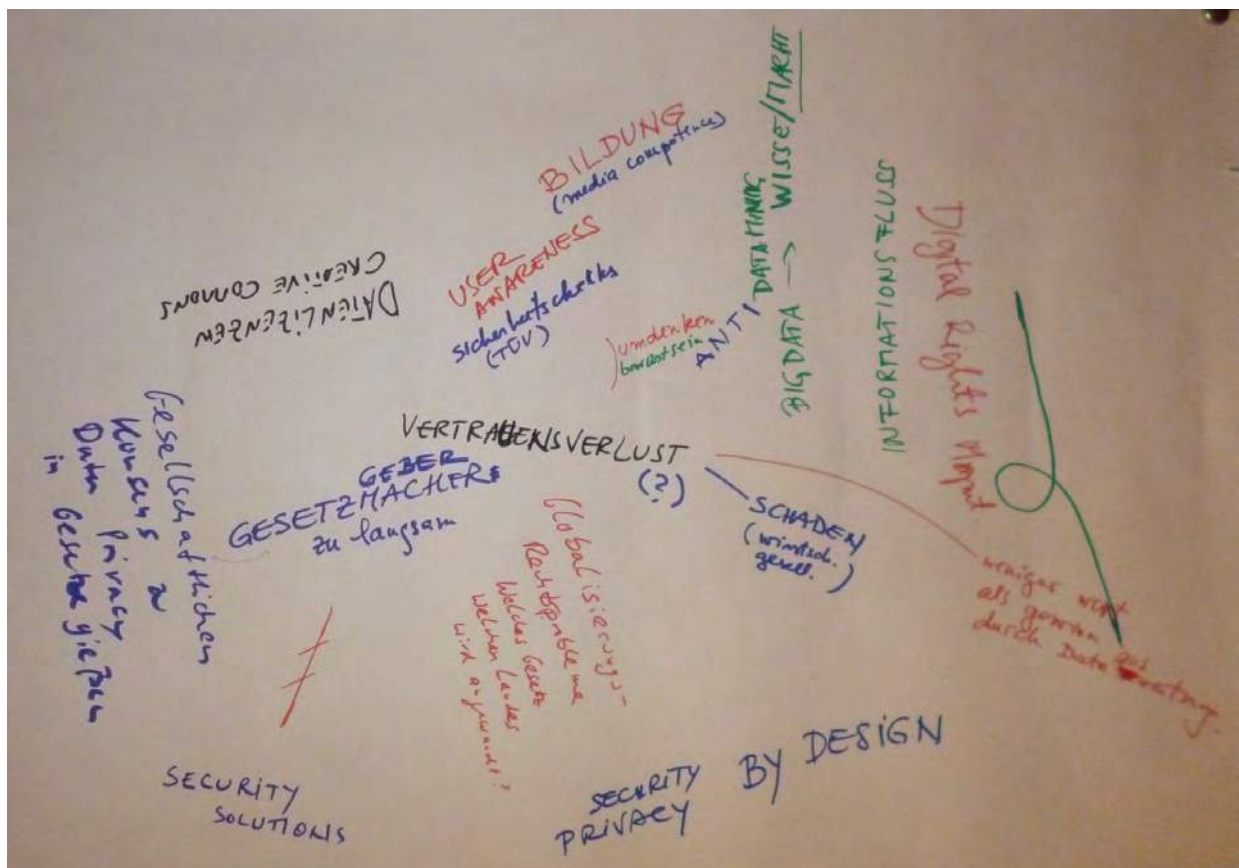 BILDUNG
(media competence)
USER
AWARENESS
Sicherheitschecks
(TÜV)
DATENLIZENZEN
CREATIVE COMMONS
umdenken
bewusstsein
ANTI DATAMINING
BIGDATA → WISSE/MACHT
INFORMATIONSFLUSS
Digital Rights Mgmt.
VERTRAUENSVERLUST
(?)
SCHADEN
(wirtsch.
gesell.)
weniger wert
als gewinn
durch Data
GEBER
GESETZMACHER
zu langsam
Gesellschaftlichen
Konsens zu
Data Privacy
in Gesetze gießen
Globalisierungs-
Rechtsprobleme
Welches Gesetz
welchen Landes
wird angewandt?
SECURITY
SOLUTIONS
SECURITY
PRIVACY
BY DESIGN